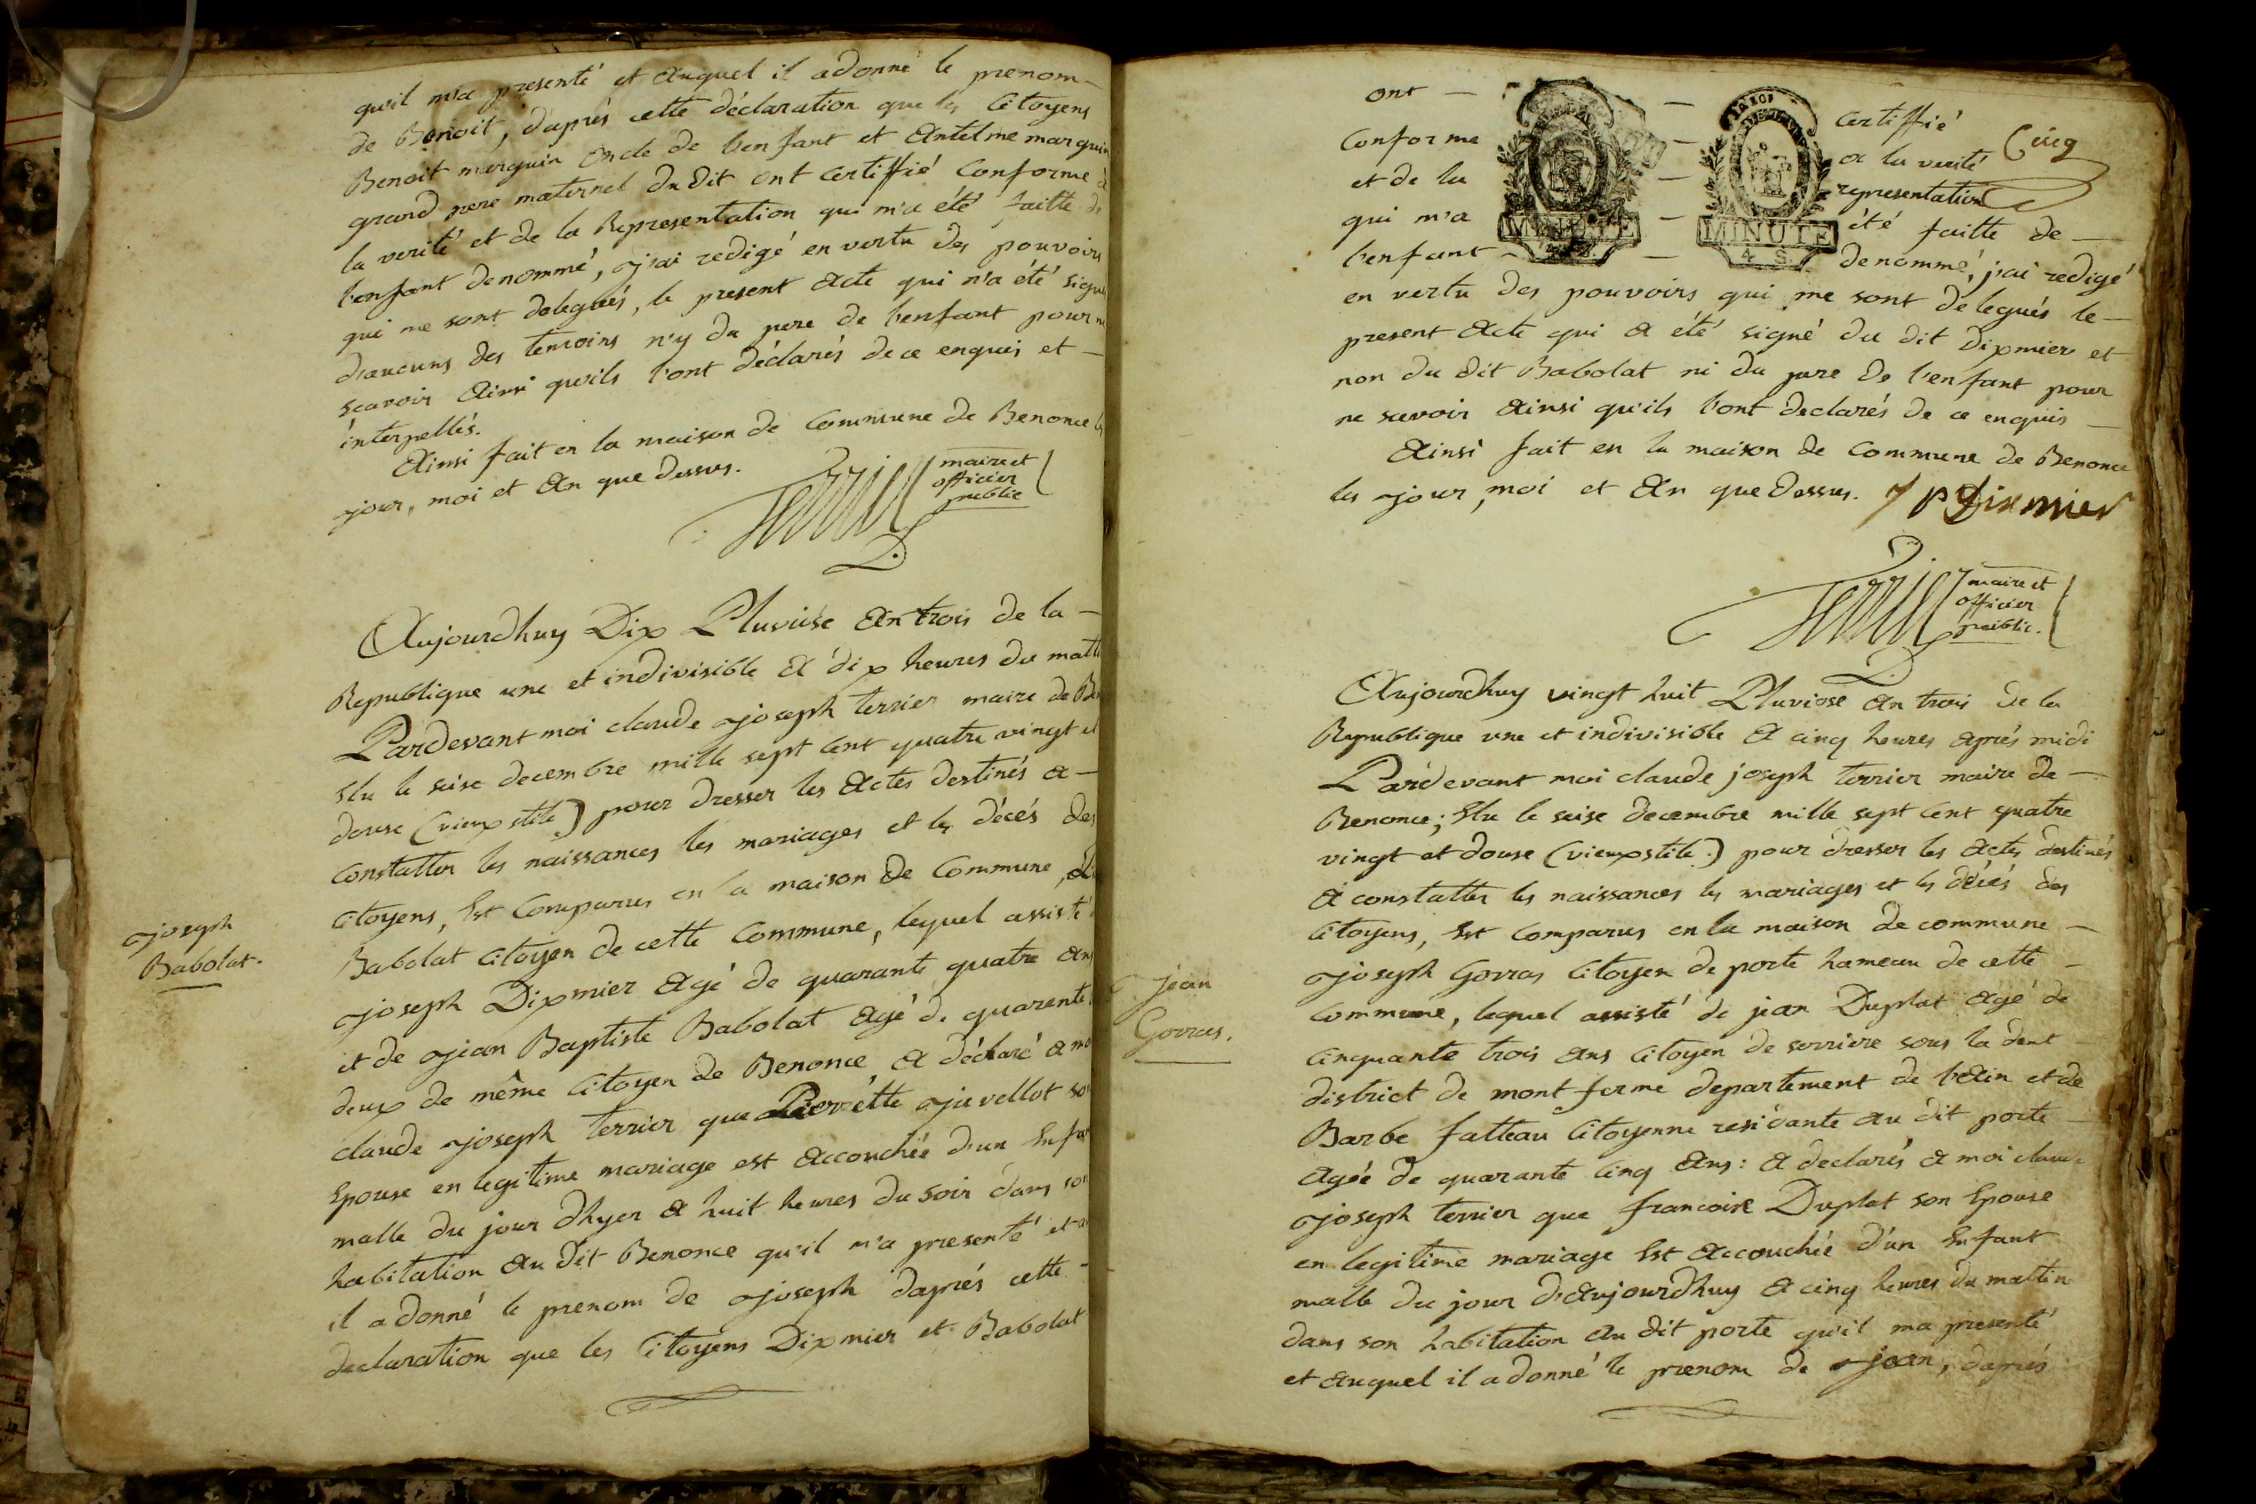 qu'il m'a presenté et auquel il a donné le prenom
de Benoit, d'aprés cette déclaration que les Citoyens
Benoit marguin oncle de l'enfant et Antelme marguin
grand pere maternel du dit ont certiffié conforme à
la verité et de la Representation qui m'a été faitte de
l'enfant denommé, j'ai redigé en vertu des pouvoirs
qui me sont délegués, le present acte qui n'a été signé
d'aucuns des temoins n'y du pere de l'enfant pour ne
sçavoir ainsi qu'ils l'ont déclarés de ce enquis et
interpellés.
Ainsi fait en la maison de Commune de Benonce les
jour, moi et an que dessus.
Terrier maire et
officier
public
Aujourdhuy Dix Pluviôse an trois de la
Republique une et indivisible a dix heures du matt
Pardevant moi claude joseph terrier maire de Ben
Elu le seise decembre mille sept cent quatre vingt et
douse (vieux stile) pour dresser les Actes destinés a
constatter les naissances les mariages et les décés des
Citoyens, Est Comparus en la maison de Commune,
joseph
Babolat.
Babolat Citoyen de cette Commune, lequel assisté
joseph Dixmier agé de quarante quatre ans
et de jean Baptiste Babolat agé de quarente
deux de même Citoyen de Benonce, a déclaré a moi
claude joseph terrier que Pierrette juvellot son
Epouse en legitime mariage est accouchée d'un Enfant
malle du jour d'hyer a huit heures du soir dans son
habitation au dit Benonce qu'il m'a presenté et
il a donné le prenom de joseph d'aprés cette
declaration que les Citoyens Dixmier et Babolat
ont certiffié
Conforme a la verité
et de la representation
qui m'a été faitte de
l'enfant denommé, j'ai redigé
MINUTE
MINUTE
4 S.
en vertu des pouvoirs qui me sont délegués le
present acte qui a été signé du dit dixmier et
non du dit Babolat ni du pere de l'enfant pour
ne savoir ainsi qu'ils l'ont declarés de ce enquis
Ainsi fait en la maison de Commune de Benonce
les jour, moi et an que dessus. J p Dixmier
Terrier maire et
officier
public.
Aujourdhuy vingt huit Pluviose an trois de la
Republique une et indivisible a cinq heures aprés midi
Pardevant moi claude joseph terrier maire de
Benonce; Elu le seise decembre mille sept cent quatre
vingt et douse (vieux stile.) pour dresser les actes destinés
à constatter les naissances les mariages et les décés des
Citoyens, Est Comparus en la maison de commune
jean
Gorras.
joseph Gorras Citoyen de porte hameau de cette
Commune, lequel assisté de jean Duplat agé de
Cinquante trois ans Citoyen de serriere sous la dent
district de mont ferme departement de l'Ain et de
Barbe fatteau Citoyenne residante au dit porte
agée de quarante Cinq ans: a declarés a moi claude
joseph terrier que francoise Duplat son Epouse
en legitime mariage Est accouchée d'un Enfant
malle du jour d'aujourdhuy a cinq heures du mattin
dans son habitation au dit porte qu'il m'a presenté
et auquel il a donné le prenom de jean, d'aprés